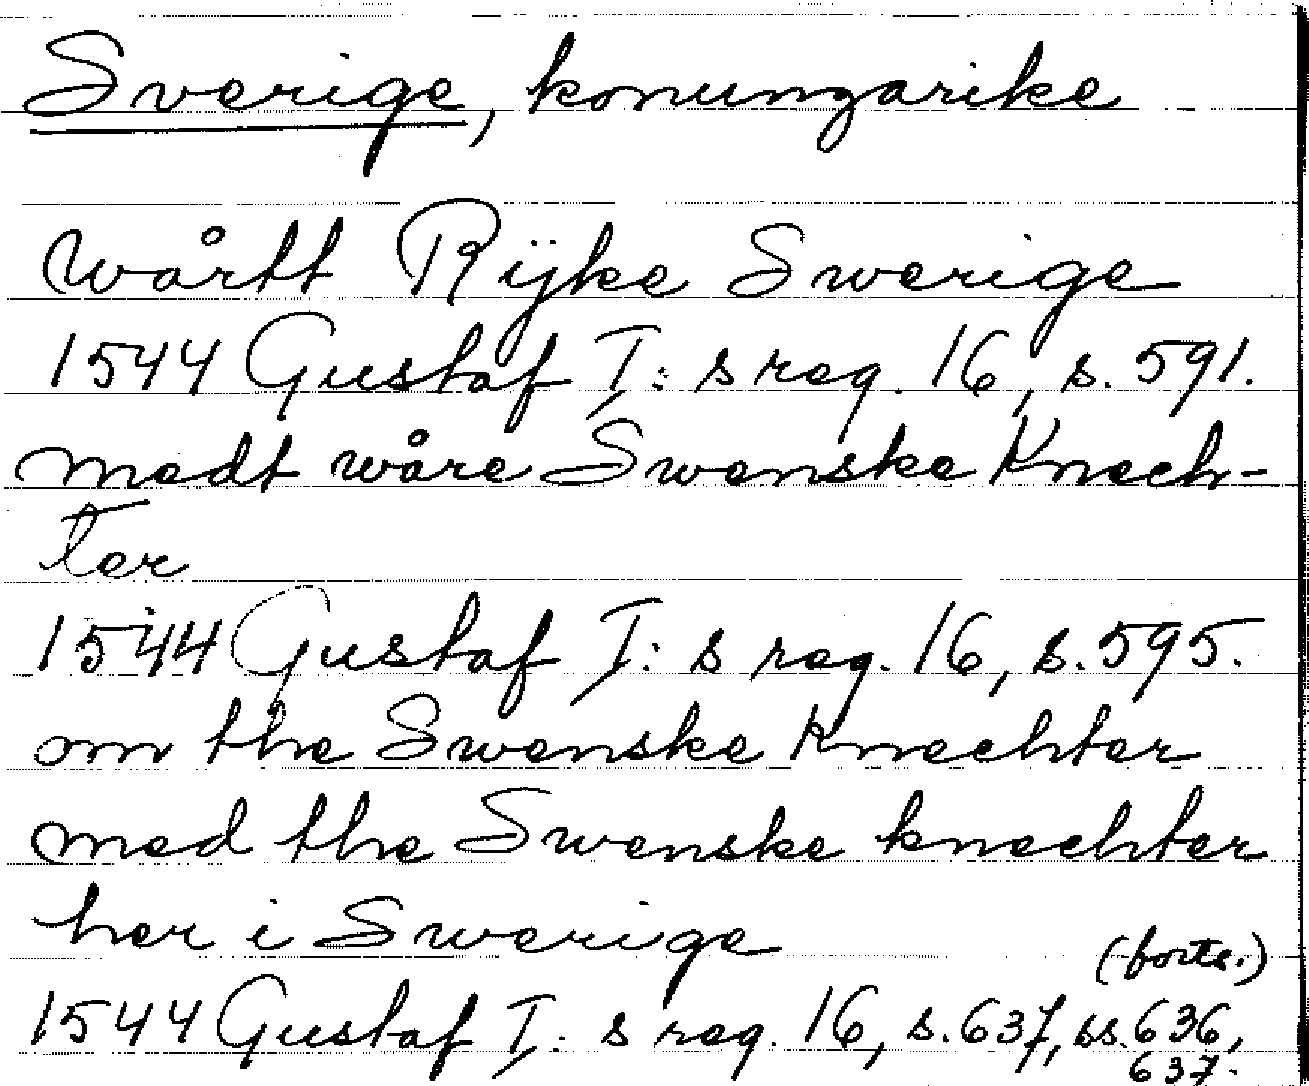 Sverige, konungarike
wårtt Rÿke Swerige
1544 Gustaf I: s reg. 16, s. 591.
medt wåre Swenske Knech-
ter
1544 Gustaf I: s reg. 16, s. 595.
om the Swenske Knechter
med the Swenske knechter
her i Swerige
(forts.)
1544 Gustaf I: s reg. 16, s. 637, ss. 636,
637.